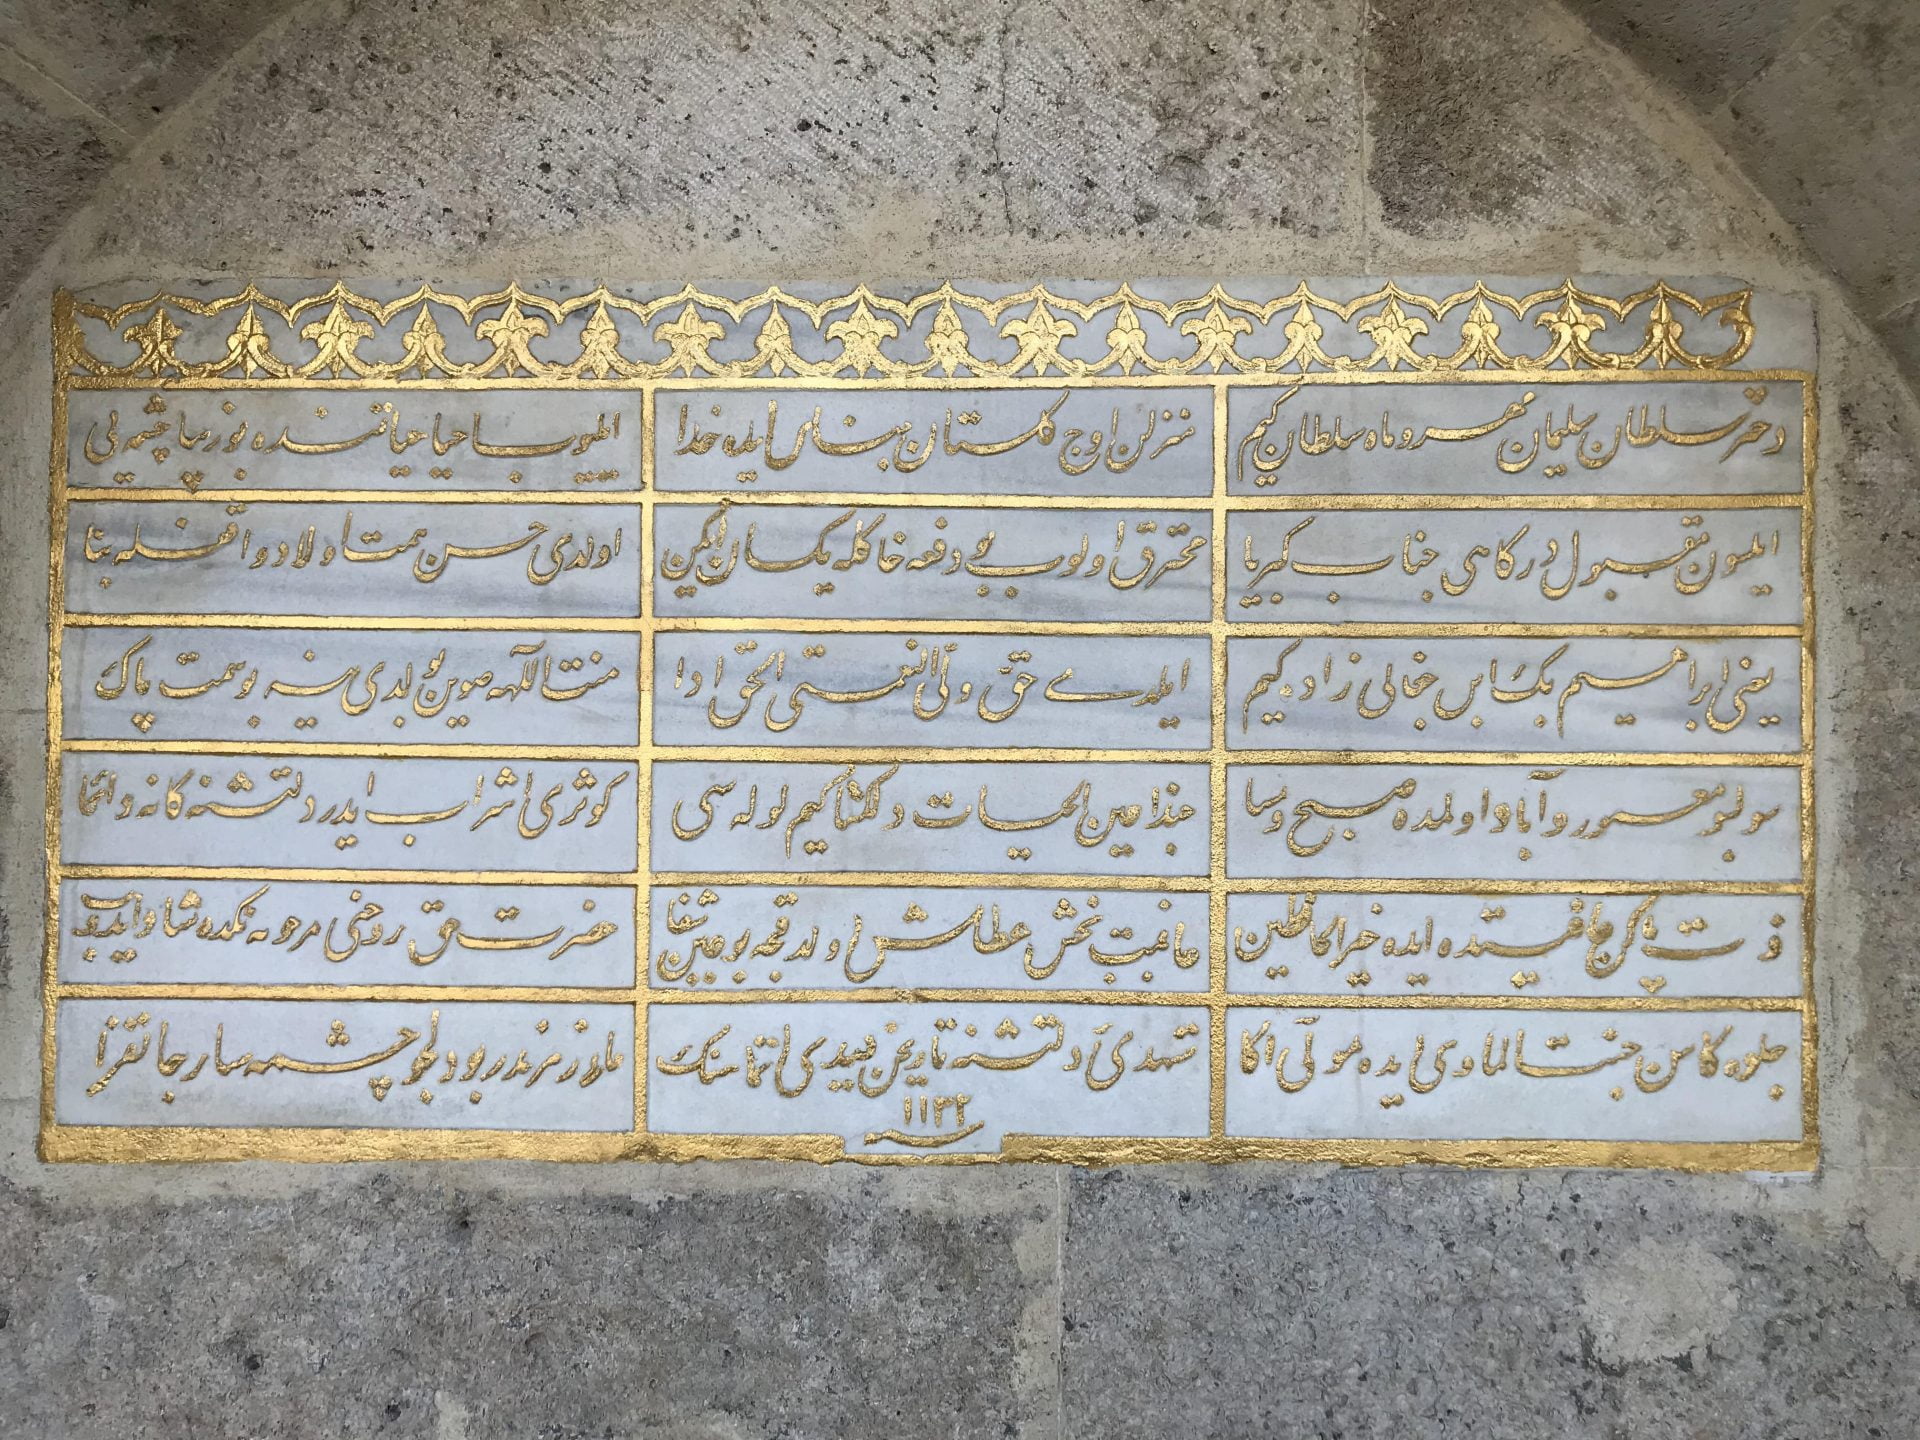 دختر سلطان سلیمان مهر و ماه سلطان کیم
منزلن اوج کلستان جنان ایده خدا
ایلیوب احیا حیاتنده بو زیبا چشمه یی
ایلسون مقبول درکاهی جناب کبریا
محترق اولوب بو دفعه خاکله یکسان ایکن
اولدی حسن همت اولاد واقفله بنا
یعنی ابراهیم بک ابن خالی زاده کیم
ایلدی حق ولی النعمتی الحق ادا
منتا للهه صوین بولدی ینه بو سمت پاک
سو بسو معمور و آباد اولمده صبح و مسا
هذا عین الحیات دلکشا کیم لوله سی
کوثری اشراب ایدر دلتشنه کانه دائما
ذات پاکن عافیتده ایده خیر الحافظین
عافیت بخش عطاش اولدقجه بو عین شفا
حضرت حق روحنی مرحومه نکده شاد ایدوب
جلوه کاهن جنت المأوی ایده مولی آکا
تشهدی آ دلتشنه تاریخن دیدی اتمامنک
ماء زمزمدر بو دلجو چشمه سار جانفزا
سنه ١١٣٢